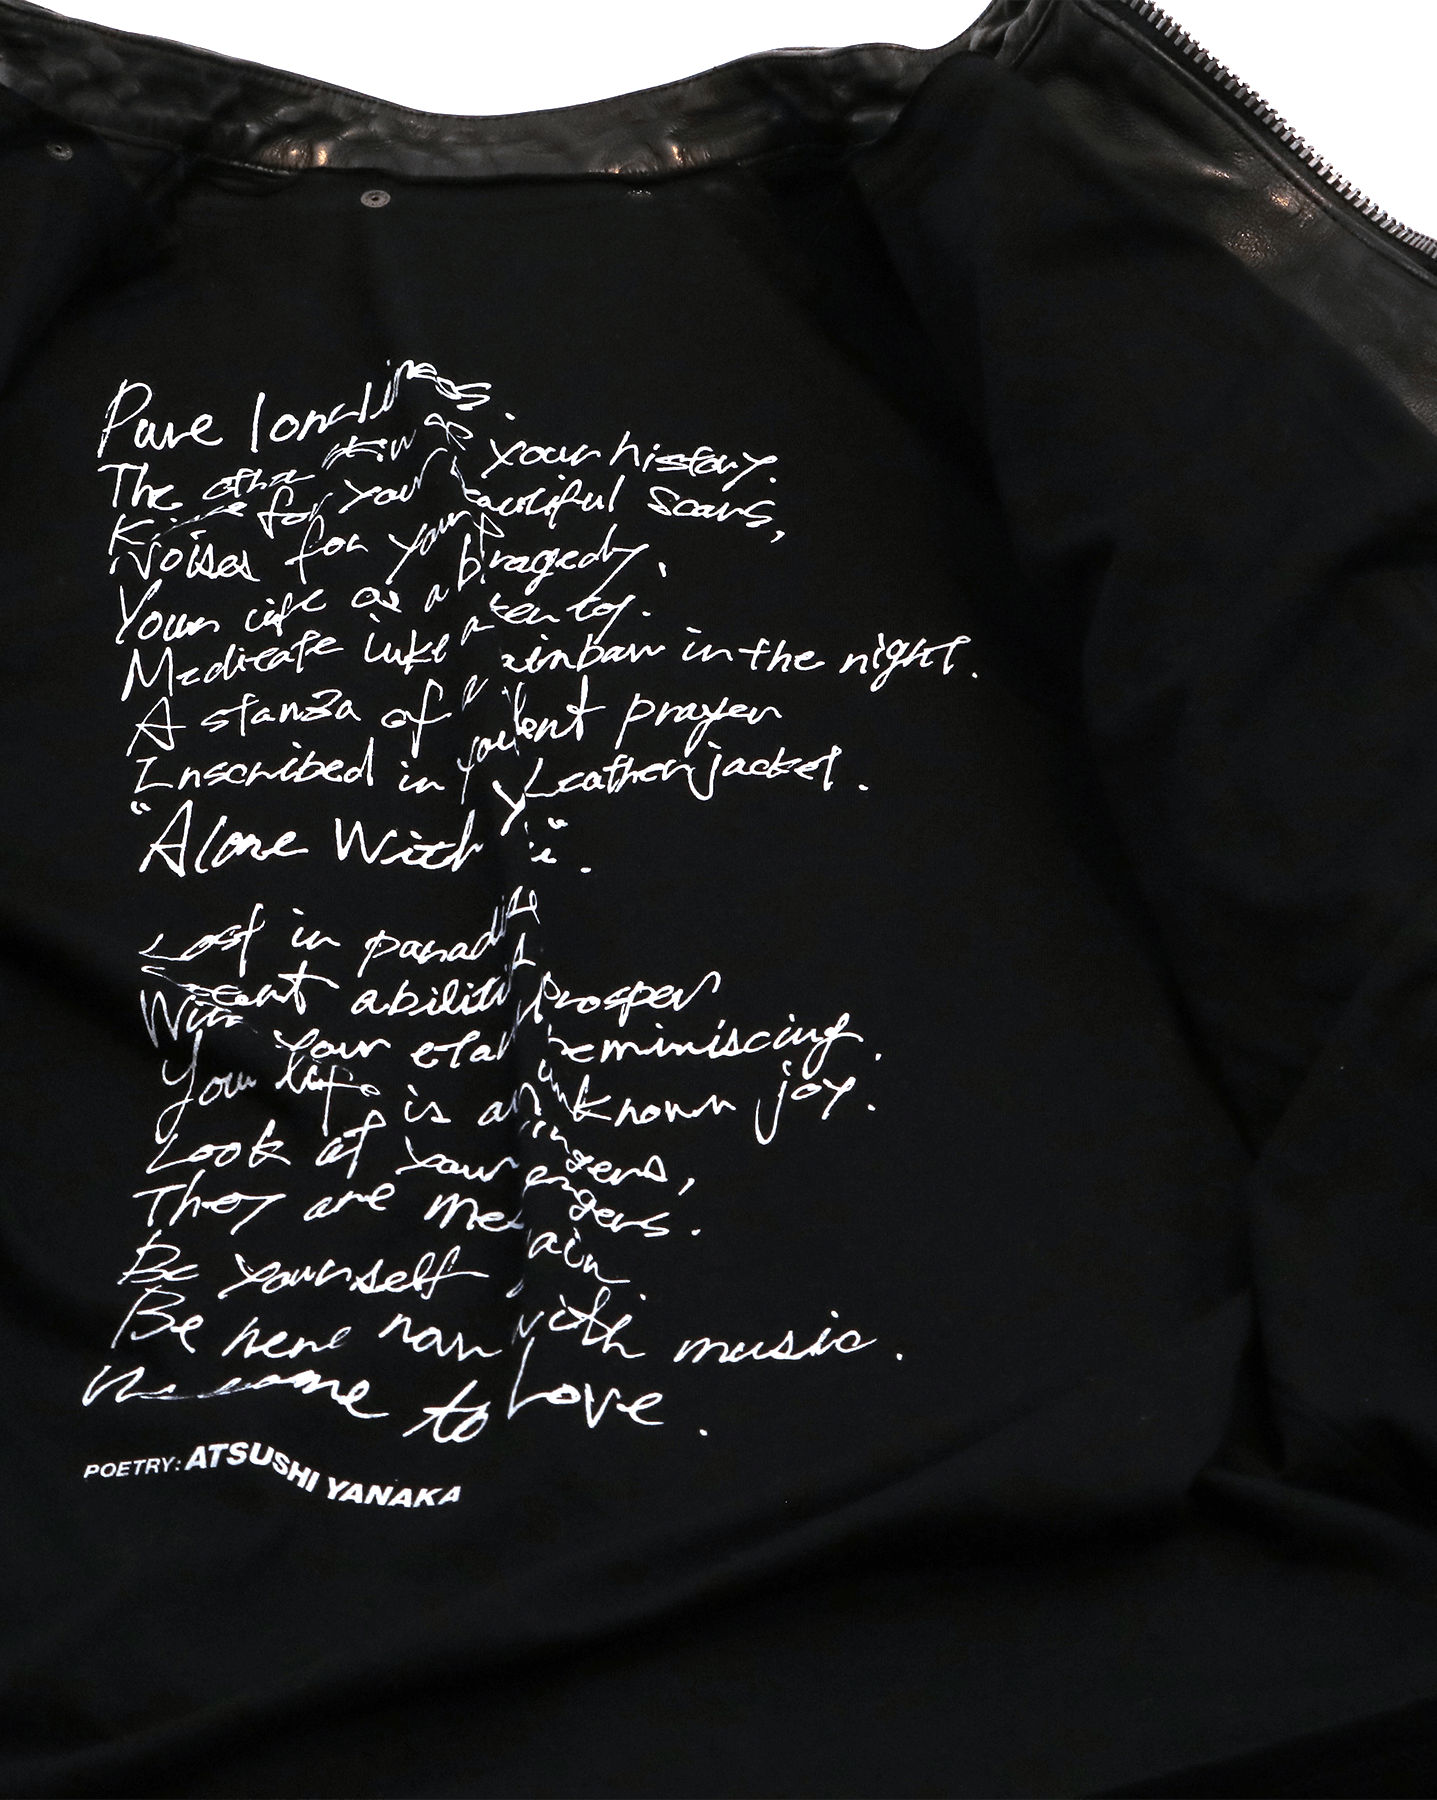 Pure loneliness.
The other your history.
for your beautiful scars,
Noises for your tragedy,
Your life as a
Meditate like a rainbow in the night.
A stanza of a silent prayer
Inscribed in your Leather jacket.
"Alone With
Lost in paradise
ability prosper
With your reminiscing.
Your life is an unknown joy.
Look at your fingers,
They are
Be yourself again
Be here now with music.
to Love.
POETRY: ATSUSHI YANAKA